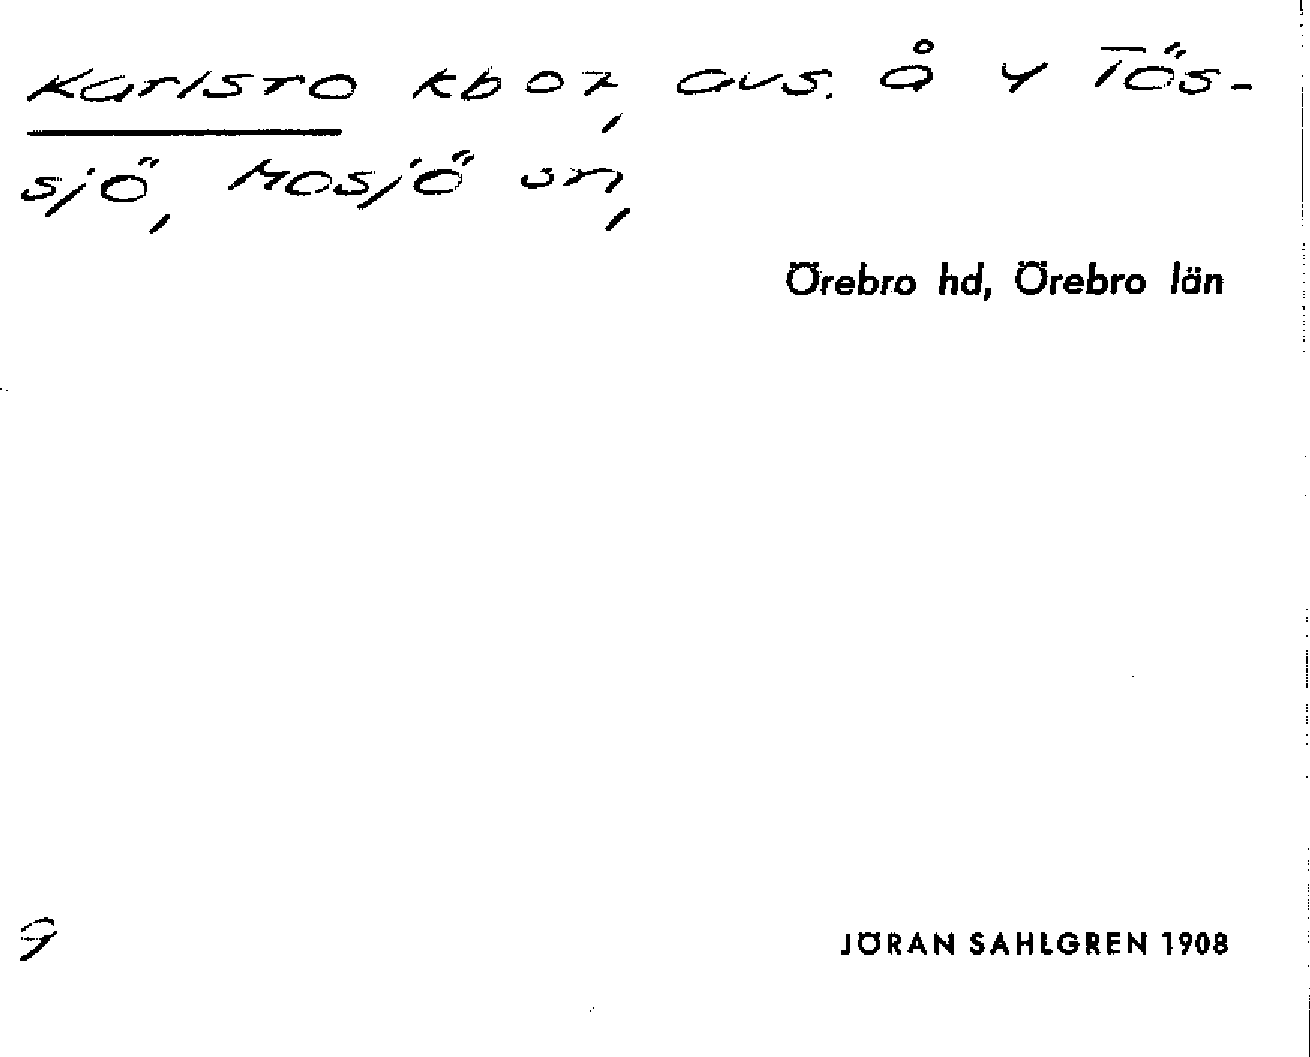 Karlsro kb 07, avs. å Y Tös-
sjö, Mosjö sn,
Örebro hd, Örebro län
9
JÖRAN SAHLGREN 1908